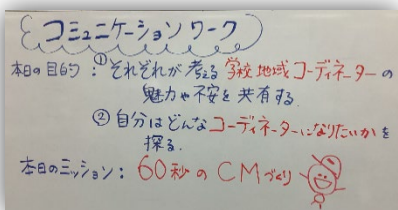 コミュニケーションワーク
本日の目的:①それぞれが考える学校地域コーディネーターの
魅力や不安を共有する.
②自分はどんなコーディネーターになりたいかを
探る.
本日のミッション:60秒のCMづくり